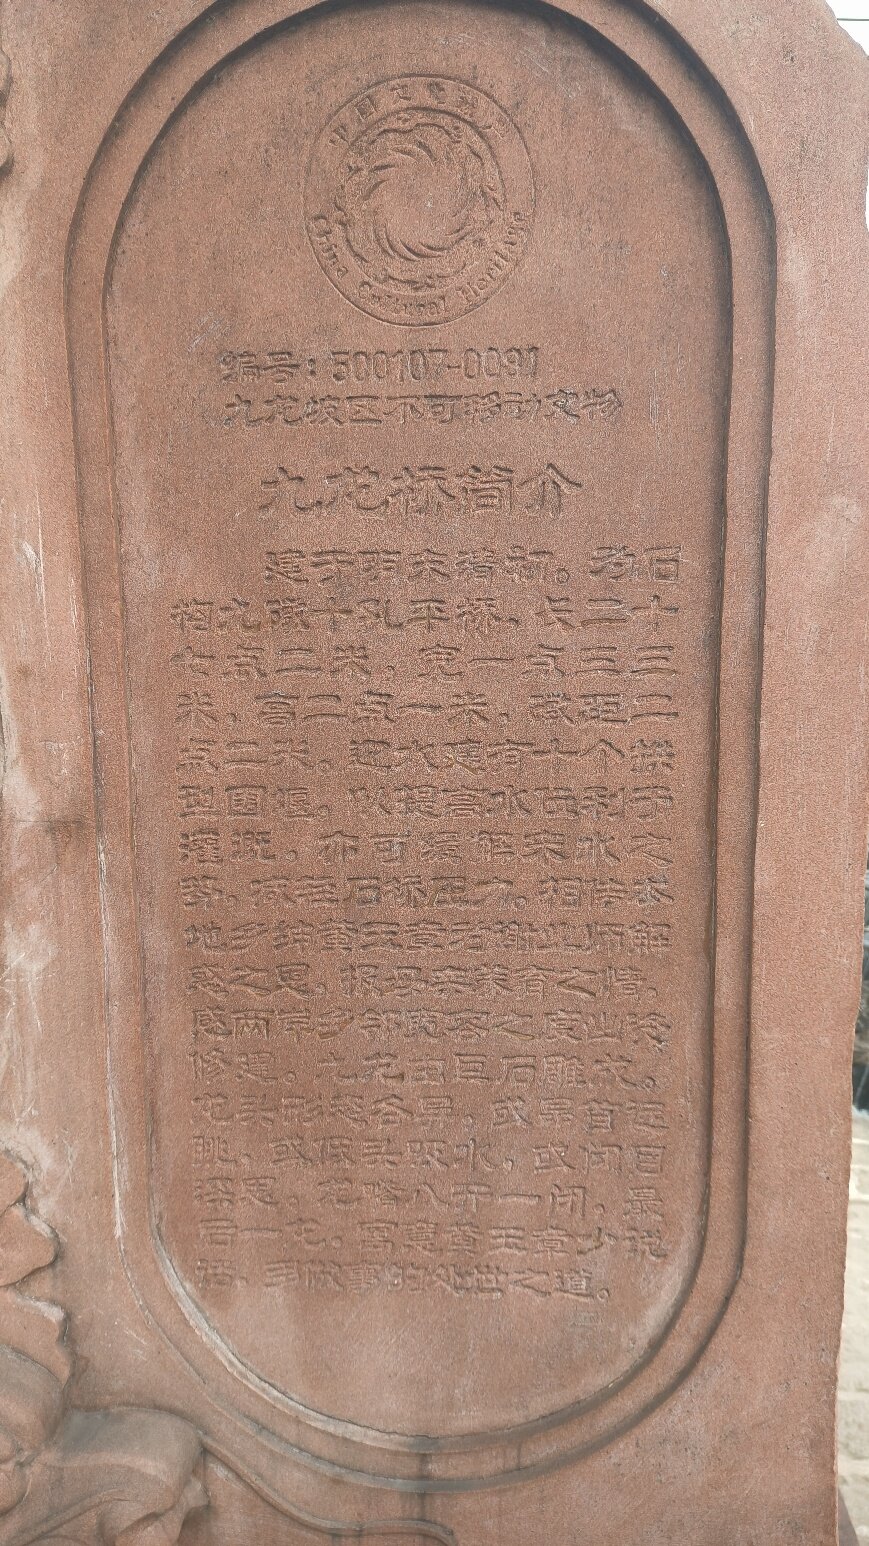 中国文化遗产
China Cultural Heritage
编号：500107-0091
九龙坡区不可移动文物
九龙桥简介
建于明末清初。为石
构九墩十孔平桥，长二十
七点二米，宽一点三三
米，高二点一米，墩距二
点二米。迎水建有十个拱
型围堰，以提高水位利于
灌溉，亦可缓解来水之
势，减轻石桥压力。相传本
地乡绅黄玉章为谢业师解
惑之恩，报母亲养育之情，
感两岸乡邻宽容之意出资
修建。九龙由巨石雕成。
龙头形态各异，或昂首远
眺，或低头吸水，或闭目
深思，龙嘴八开一闭，最
后一龙，寓意黄玉章少说
话，多做事的处世之道。